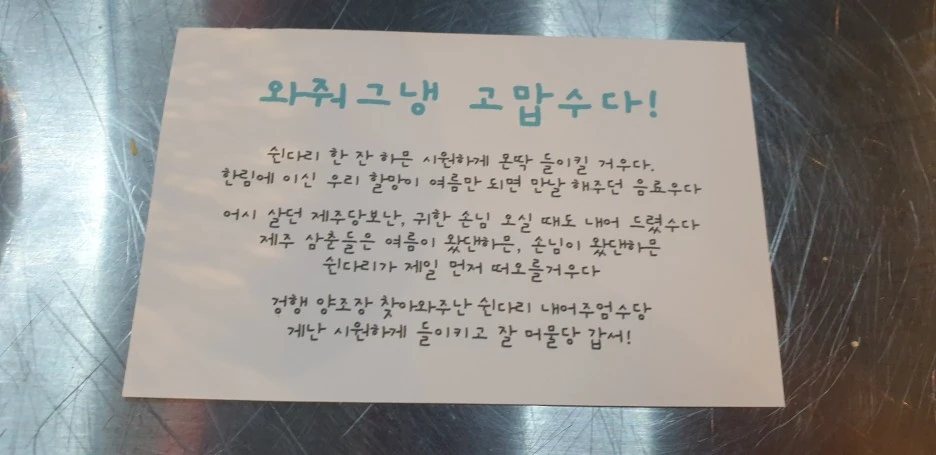 와줘그냉 고맙수다!
쉰다리 한 잔 하믄 시원하게 몬딱 들이킬 거우다.
한림에 이신 우리 할망이 여름만 되면 만날 해주던 음료우다
어시 살던 제주당보난, 귀한 손님 오실 때도 내어 드렸수다
제주 삼춘들은 여름이 왔댄하믄, 손님이 왔댄하믄
쉰다리가 제일 먼저 떠오를거우다
경행 양조장 찾아와주난 쉰다리 내어주엄수당
게난 시원하게 들이키고 잘 머물당 갑서!